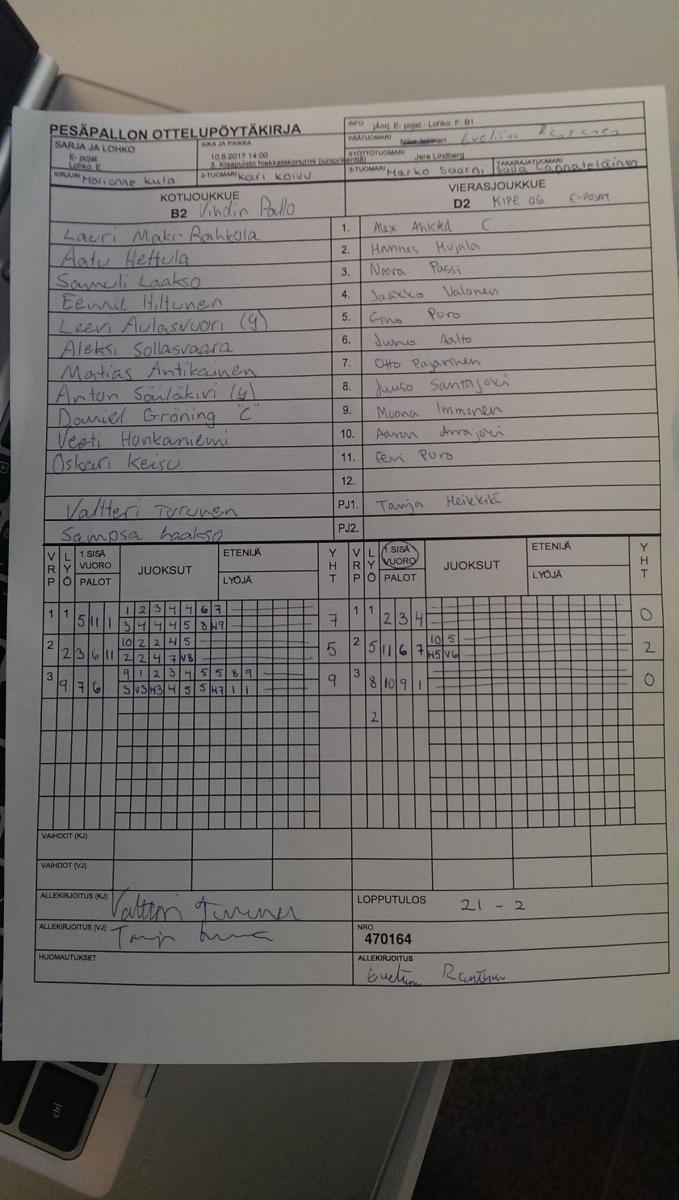 PESÄPALLON OTTELUPÖYTÄKIRJA
INFO jÄrrj. E- pojat - Lohko. F. B1
PÄÄTUOMARI Eveliina
SARJA JA LOHKO
E- pojat
Lohko. E
AIKA JA PAIKKA
10.6.2017 14:00
3. Kisapuisto hiekkatekonurmi (juniorikenttä)
SYÖTTÖTUOMARI Jere Lindberg
KIRJURI Marianne Kula
2-TUOMARI Kari Koivu
3-TUOMARI Marko Saarni
TAKARAJATUOMARI Salla Lannateläinen
KOTIJOUKKUE
B2 Vihdin Pallo
VIERASJOUKKUE
D2 KIPE 06 E-POJAT
Lauri Mäki-Rahkola 1. Alex C
Aatu Hettula 2. Hannes Hujala
Samuli Laakso 3. Noora Passi
Eemil Hiltunen 4. Jaakko Valonen
Leevi Aulasvuori (y) 5. Gino Puro
Aleksi Sollasvaara 6. Juho Aalto
Matias Antikainen 7. Otto Pajarinen
Anton Säiläkivi (y) 8. Juuso Santajoki
Daniel Gröning "C" 9. Moona Immonen
Veeti Honkaniemi 10. Aaron
Oskari Keisu 11. Eevi Puro
12.
Valtteri Turunen PJ1. Tanja Heikkilä
Sampsa Laakso PJ2.
VRP LYÖ 1.SISÄ VUORO PALOT JUOKSUT ETENIJÄ LYÖJÄ YHT VRP LYÖ 1.SISÄ VUORO PALOT JUOKSUT ETENIJÄ LYÖJÄ YHT
1 1 5 11 1 1 2 3 4 4 6 7 7 1 1 2 3 4 0
3 4 4 4 5 8 H9
2 2 3 6 11 10 2 2 4 5 5 2 5 11 6 7 10 5 2
2 2 4 7 V8 H5 V6
3 9 7 6 9 1 2 3 4 5 5 8 9 9 3 8 10 9 1 0
3 V3 H3 4 5 5 H7 1 1
2
VAIHDOT (KJ)
VAIHDOT (VJ)
ALLEKIRJOITUS (KJ) Valtteri Turunen
LOPPUTULOS 21 - 2
ALLEKIRJOITUS (VJ)
NRO
470164
HUOMAUTUKSET
ALLEKIRJOITUS
ctrl